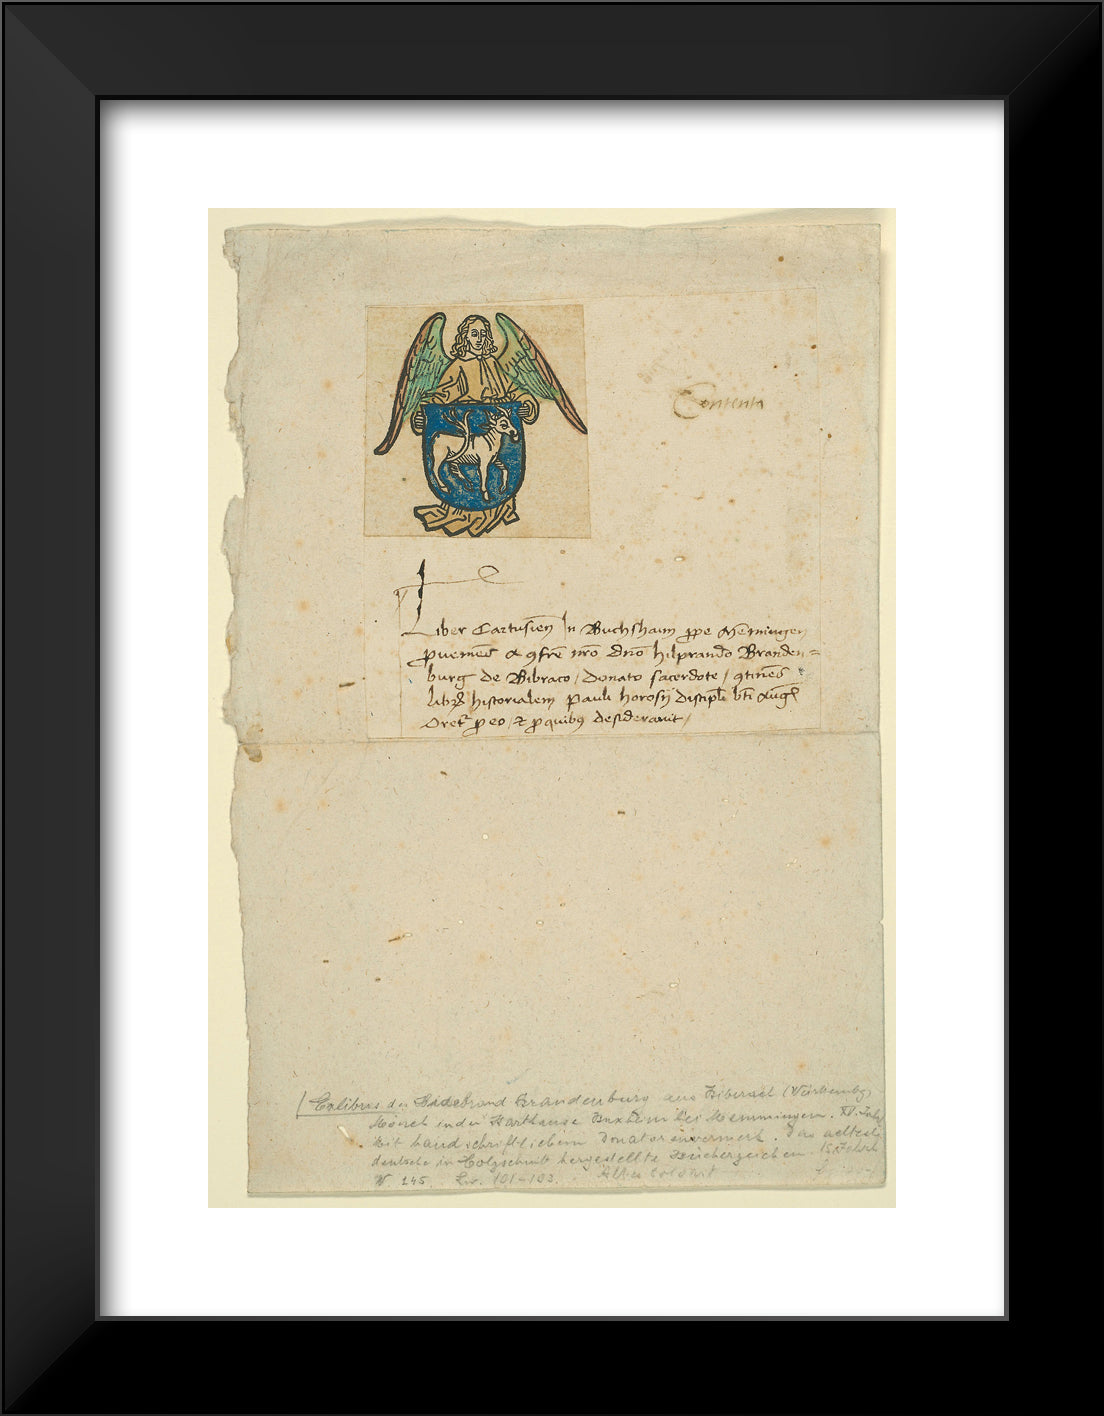 Contenta
Liber Cartusien̄ In Buchshaim ꝓpe Mēmingen
ꝓueniens a ꝯfrē nr̄o dn̄o hilprando Branden=
burg de Bibraco / donato sacerdote / ꝯtinēs
historialem Pauli horosij discipli bt̄i Aug
Oret̄ ꝓ eo, et ꝓ quibus desiderauit /
Exlibris des Hildebrand Brandenburg aus Biberach (Württembg)
Mönch in der Karthause Buxheim bei Memmingen. XV. Jahr
Mit handschriftlichem Donatorenvermerk. Das aelteste
deutsche in Holzschnitt hergestellte Bücherzeichen.
W. 145. Lw. 101-103. Altes Colorit